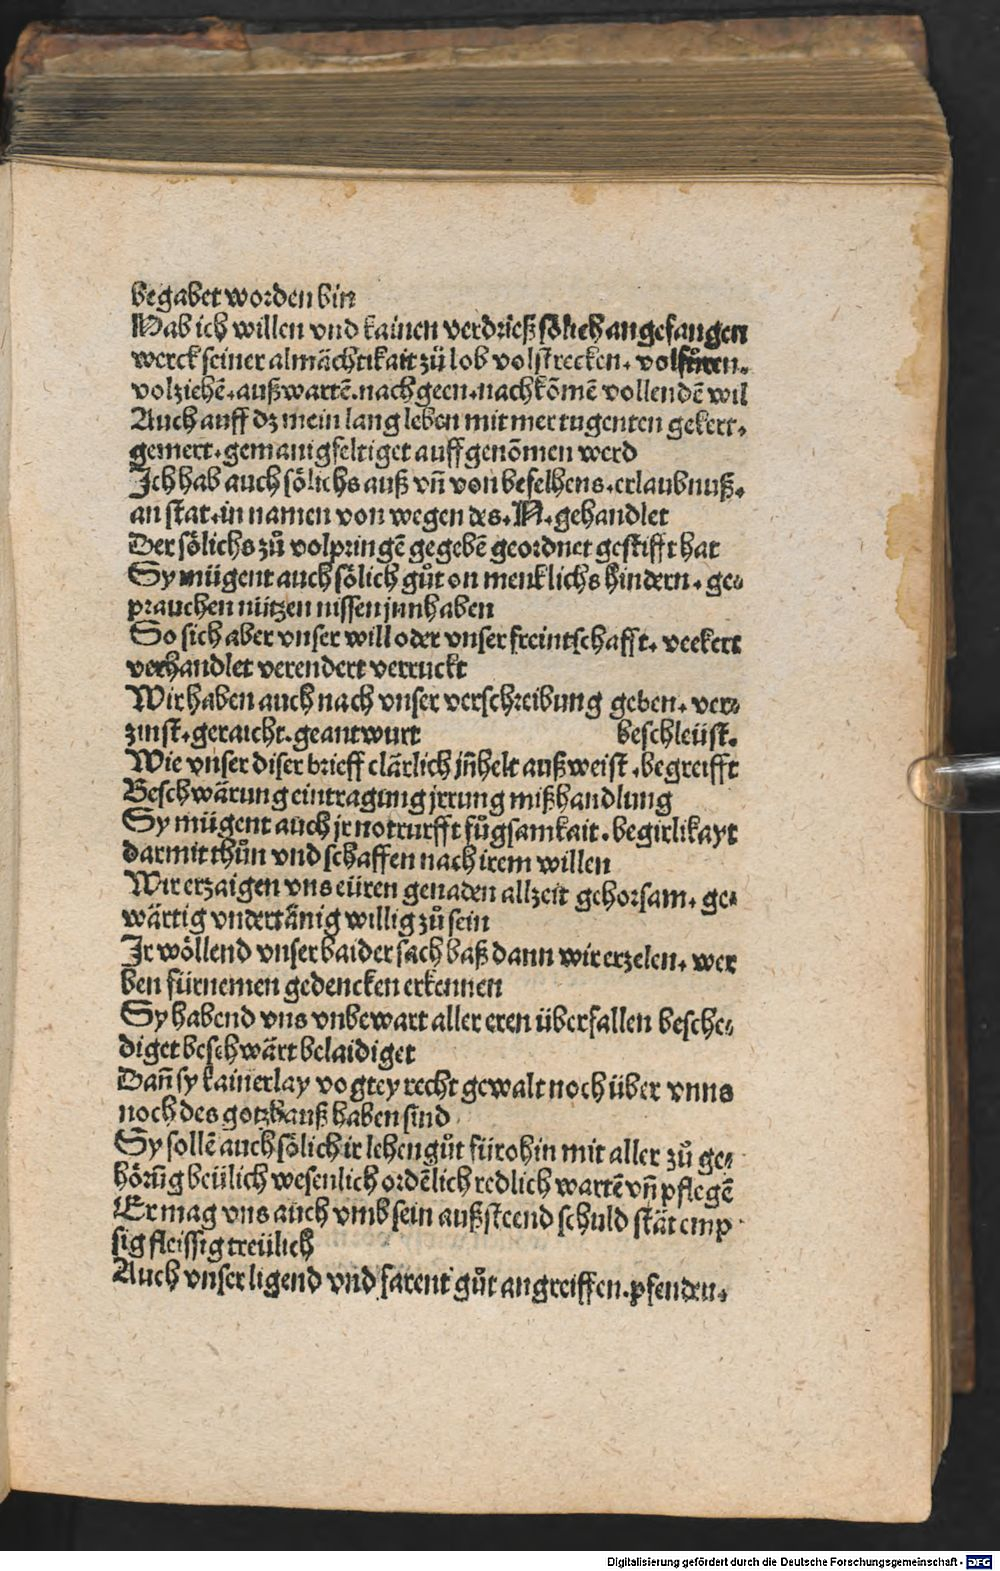 begabet worden bin
Hab ich willen vnd kainen verdrieß sölich angefangen
werck seiner almächtikait zů lob volstrecken. volfůren.
volziehē. außwartē. nachgeen. nachkōmē vollendē wil
Auch auff dz mein lang leben mit mer tugenten gekert.
gemert. gemanigfeltiget auffgenōmen werd
Jch hab auch sölichs auß vn̄ von befelhens. erlaubnuß.
an stat. in namen von wegen des. N. gehandlet
Der sölichs zů volpringē gegebē geordnet gestifft hat
Sy mügent auch sölich gůt on menklichs hindern. ge⸗
prauchen nützen nissen jnnhaben
So sich aber vnser will oder vnser freintschafft. veekert
verhandlet verendert verruckt
Wir haben auch nach vnser verschreibung geben. ver⸗
zinst. geraicht. geantwurt beschleüst.
Wie vnser diser brieff clärlich jn̄helt außweist. begreifft
Beschwärung eintragung jrrung mißhandlung
Sy mügent auch jr notturfft fůgsamkait. begirlikayt
darmit thůn vnd schaffen nach irem willen
Wir erzaigen vns eüren genaden allzeit gehorsam. ge⸗
wärtig vndertänig willig zů sein
Jr wöllend vnser baider sach baß dann wir erzelen. wer
ben fürnemen gedencken erkennen
Sy habend vns vnbewart aller eren überfallen besche⸗
diget beschwärt belaidiget
Dan̄ sy kainerlay vogtey recht gewalt noch über vnns
noch des gotzhauß haben sind
Sy sollē auch sölich ir lehengůt fürohin mit aller zů ge⸗
hörūg beülich wesenlich ordēlich redlich wartē vn̄ pflegē
Er mag vns auch vmb sein außsteend schuld stät emp
sig fleissig treülich
Auch vnser ligend vnd farent gůt angreiffen. pfenden.
Digitalisierung gefördert durch die Deutsche Forschungsgemeinschaft - DFG